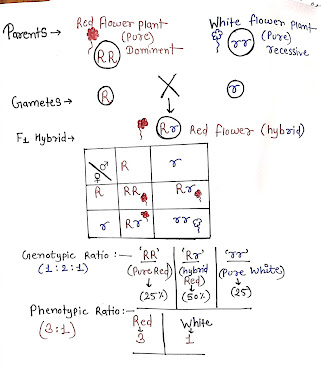 Parents → Red flower plant (Pure) White flower plant (Pure)
RR Dominent rr recessive
Gametes → R r
F1 Hybrid → Rr Red flower (hybrid)
♂ ♀ R r
R RR Rr
r Rr rr
Genotypic Ratio :— 'RR' 'Rr' 'rr'
(1:2:1) (Pure Red) (hybrid Red) (Pure White)
(25%) (50%) (25)
Phenotypic Ratio :— Red White
(3:1) 3 1